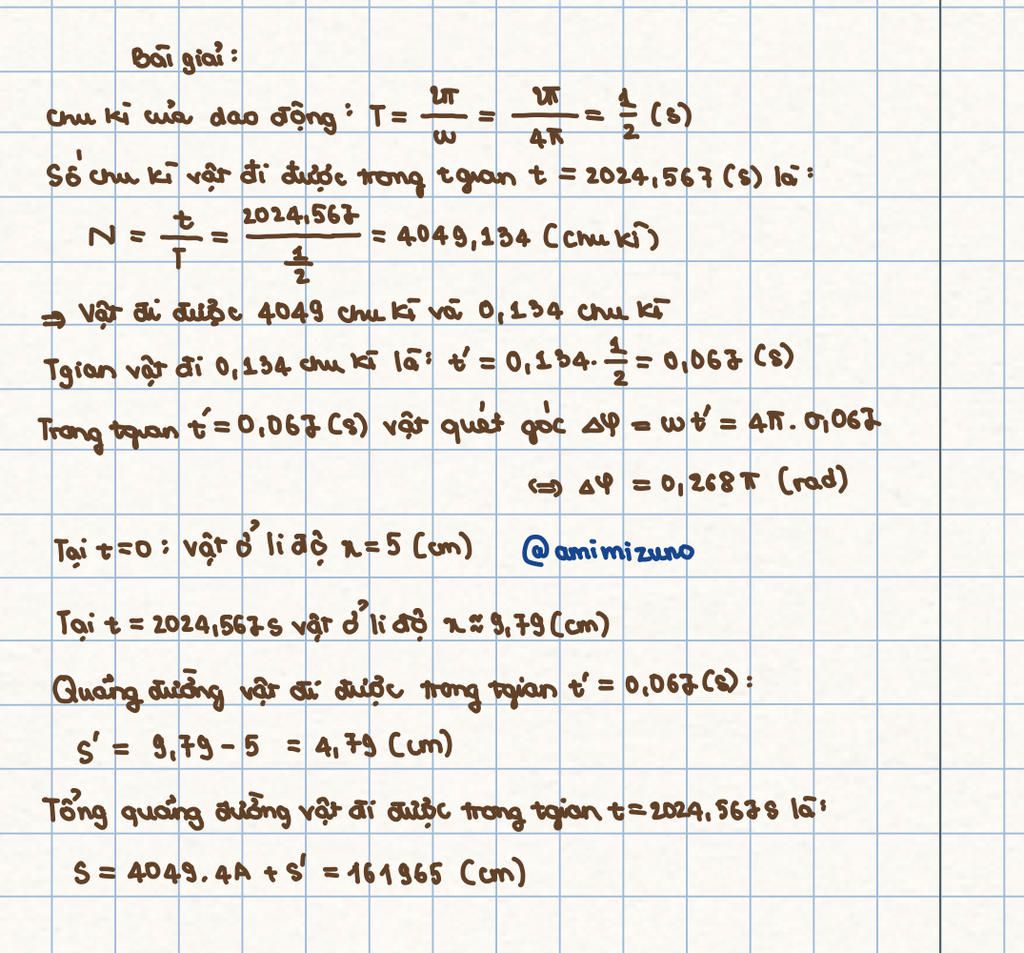 Bài giải:
Chu kì của dao động: T = 2π/ω = 2π/4π = 1/2 (s)
Số chu kì vật đi được trong tgian t = 2024,567 (s) là:
N = t/T = 2024,567/(1/2) = 4049,134 (chu kì)
⇒ Vật đi được 4049 chu kì và 0,134 chu kì
Tgian vật đi 0,134 chu kì là: t' = 0,134. 1/2 = 0,067 (s)
Trong tgian t' = 0,067 (s) vật quét góc Δφ = ωt' = 4π. 0,067
⇔ Δφ = 0,268π (rad)
Tại t=0: vật ở li độ x = 5 (cm) @amimizuno
Tại t = 2024,567s vật ở li độ x ≈ 9,79 (cm)
Quãng đường vật đi được trong tgian t' = 0,067(s):
S' = 9,79 - 5 = 4,79 (cm)
Tổng quãng đường vật đi được trong tgian t=2024,567s là:
S = 4049.4A + S' = 161965 (cm)